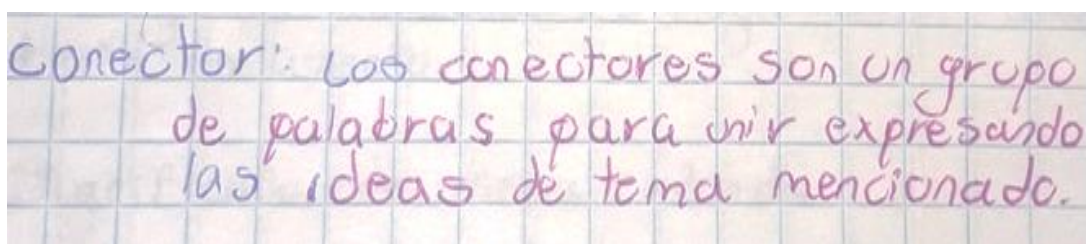 Conector: Los conectores son un grupo
de palabras para unir expresando
las ideas de tema mencionado.